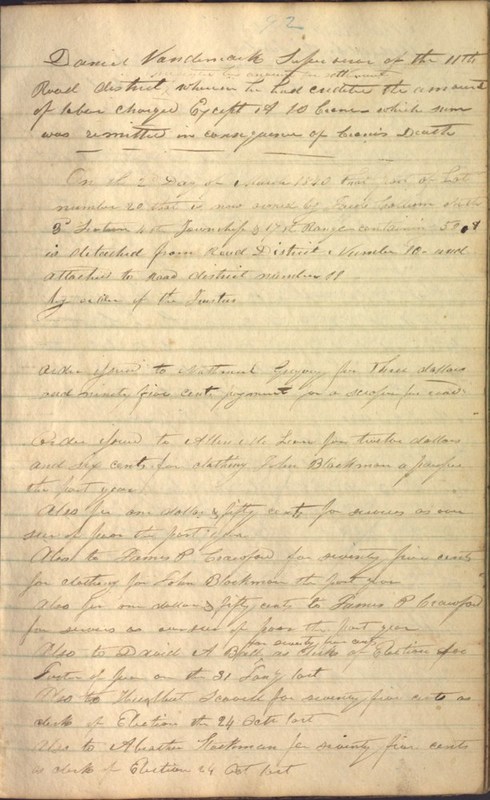 92
Daniel Vandemark Supervisor of the 11th
Road district, wherein he had credited the amount
of labor charged Except of 10 which sum
was remitted in consequence of Death
On the 2 Day of March 1840 that of Lot
number 20 that is now owned by
3 Section 4th Township & 17th Range containing
is detached from Road District Number 10 and
attached to Road district number 11
by order of the Trustees
Order given to Nathaniel Gregory for Three dollars
and ninety five cents payment for a scraper for road
Order given to Allen McLean for twelve dollars
and six cents for clothing John Blackman a pauper
the past year
Also for one dollar & fifty cents for services as over
seer of poor the past year
Also to James P Crawford for seventy five cents
for clothing for John Blackman the past year
Also for one dollar & fifty cents to James P Crawford
for servis as overseer of poor the past year
for seventy five cents
Also to David A Ball as clerk of Election for
Justice of peace on the 31 last
Also to for seventy five cents as
clerk of Election the 24 Octo last
Also to for seventy five cents
as clerk of Election 24 Oct last